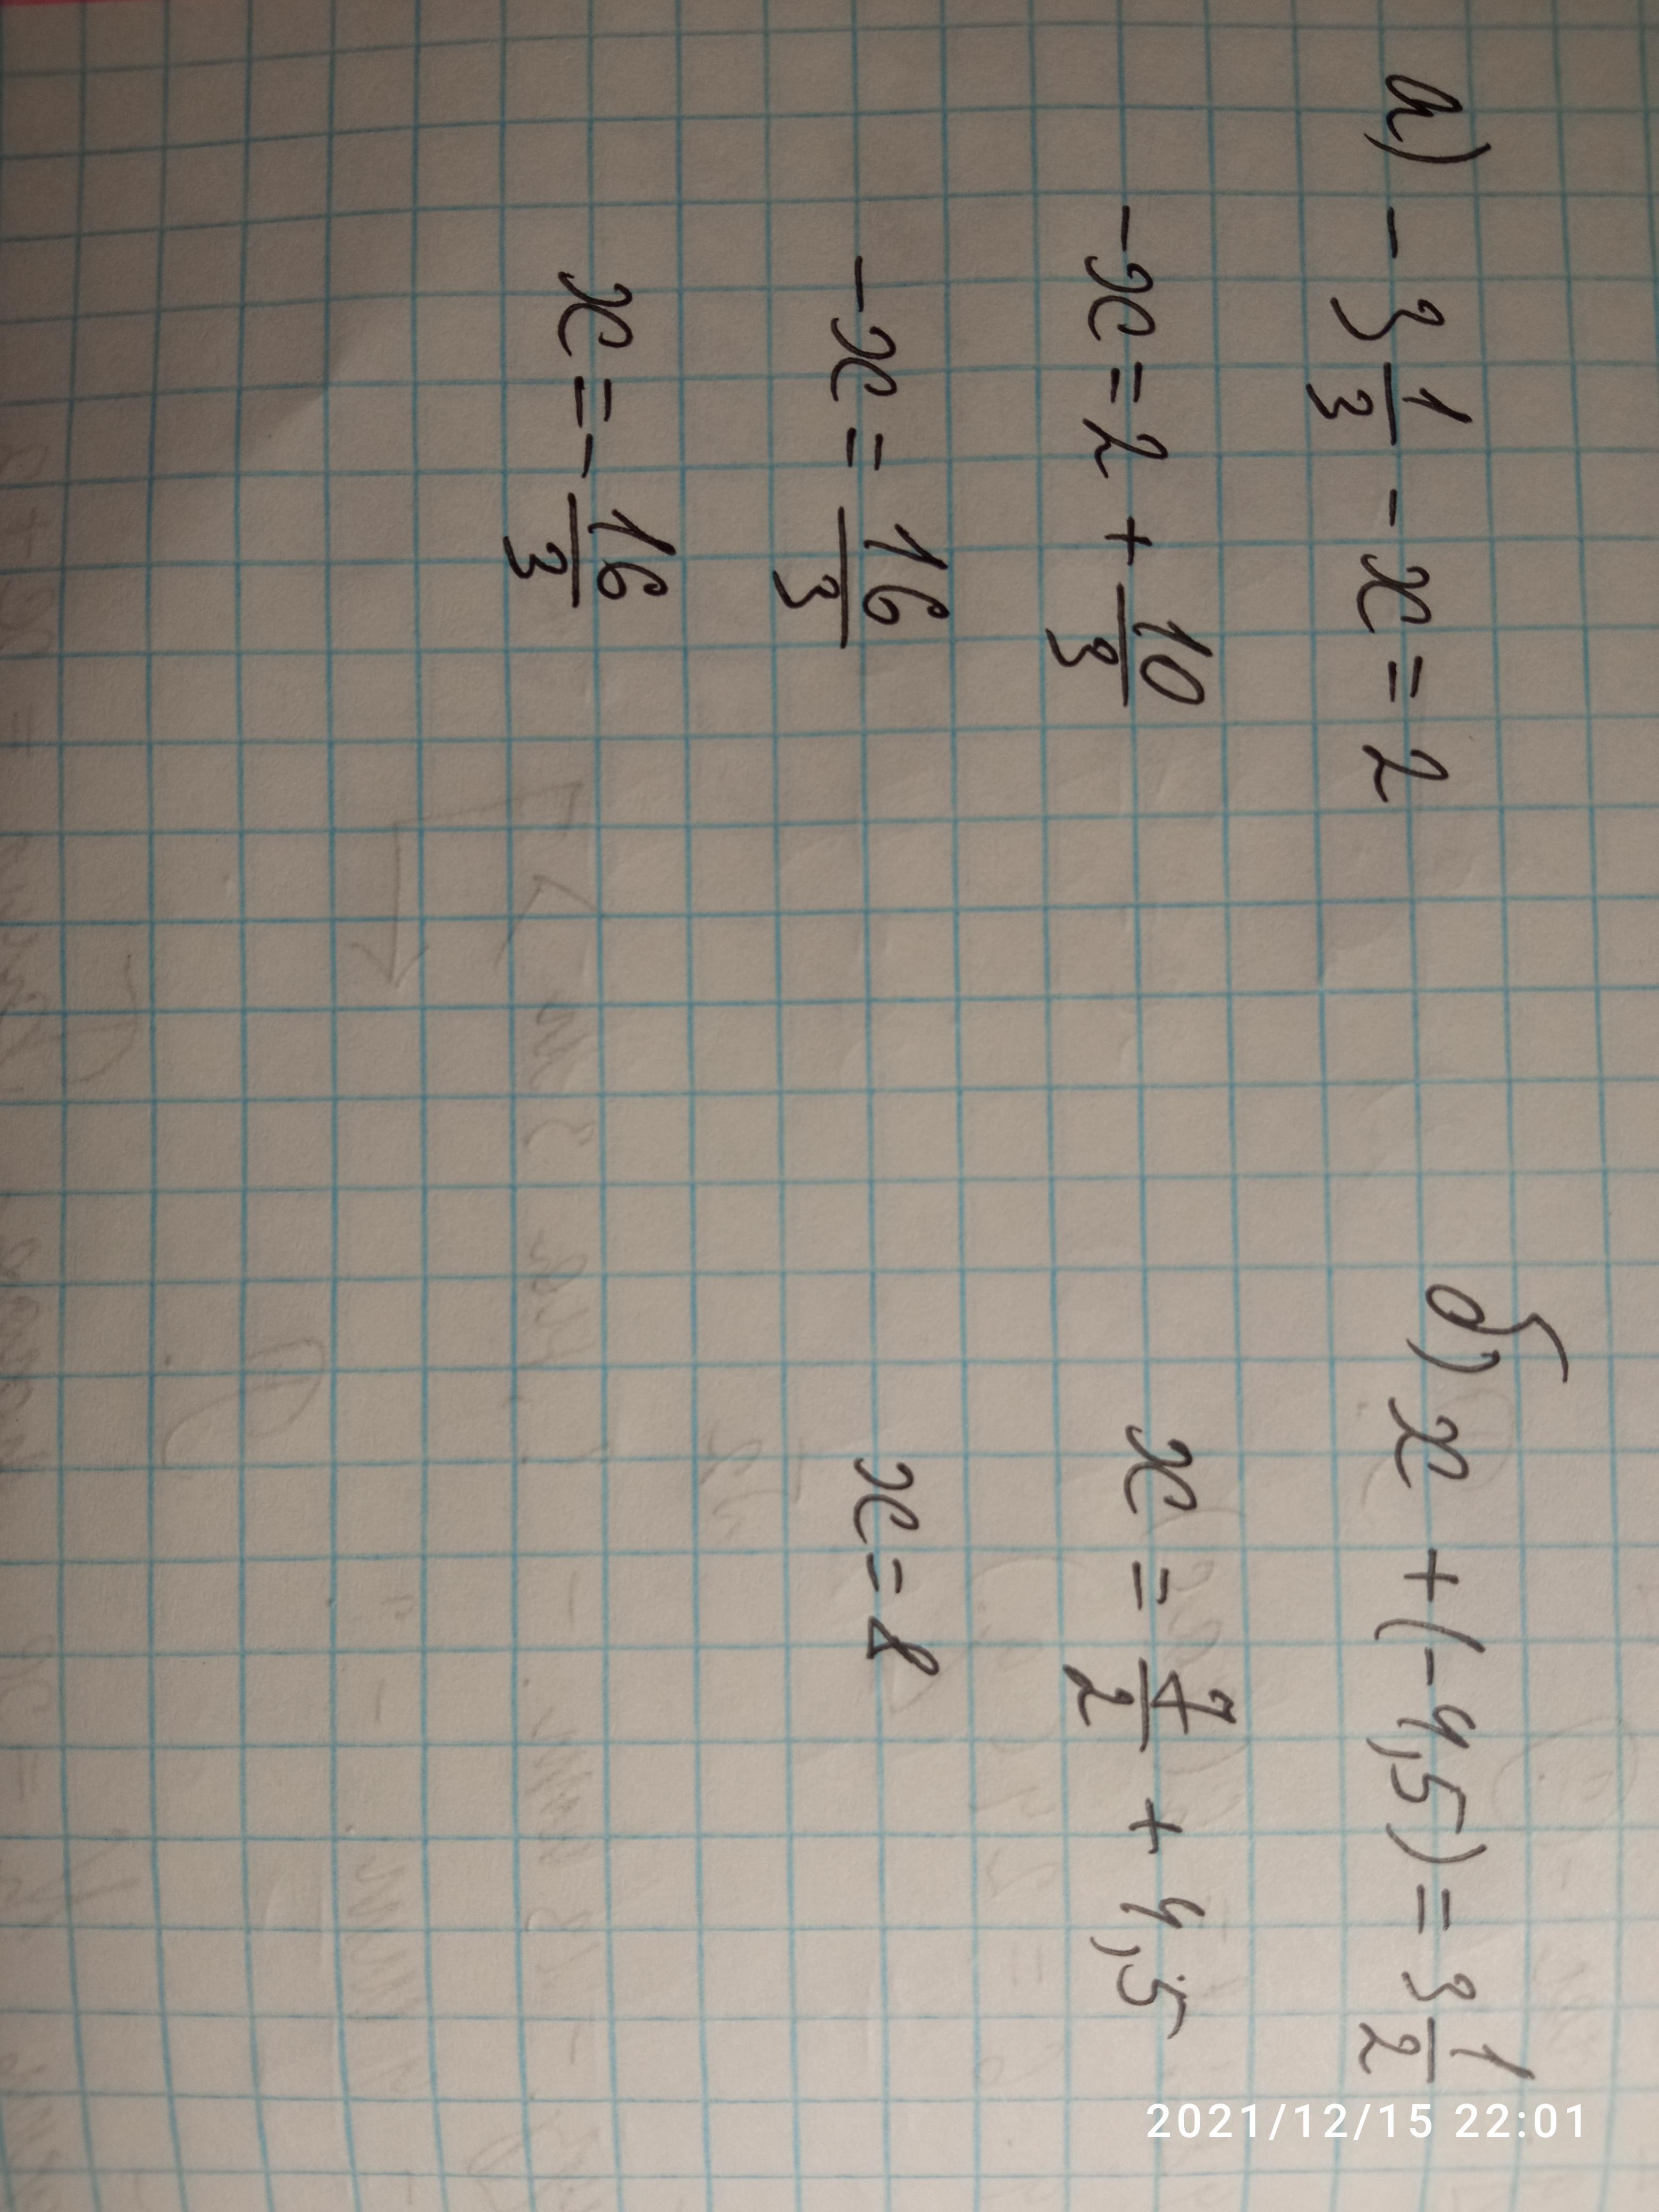 а) - 3 1/3 - x = 2
-x = 2 + 10/3
-x = 16/3
x = - 16/3
б) x + (-4,5) = 3 1/2
x = 7/2 + 4,5
x = 8
2021/12/15 22:01